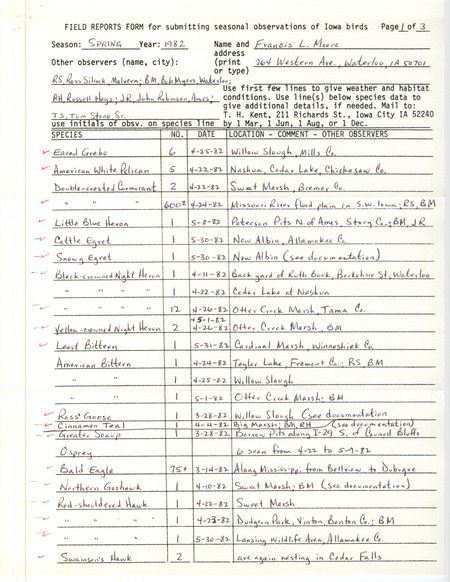 FIELD REPORTS FORM for submitting seasonal observations of Iowa birds Page 1 of 3
Season: SPRING Year: 1982 Name and Francis L. Moore
address
Other observers (name, city): (print 264 Western Ave., Waterloo, IA 50701
or type)
RS, Ross Silcock, Malvern; BM, Bob Myers, Waterloo;
Use first few lines to give weather and habitat
RH, Russell Hays; JR, John Robinson, Ames; conditions. Use line(s) below species data to
give additional details, if needed. Mail to:
TS, Tom Stone Sr. T. H. Kent, 211 Richards St., Iowa City IA 52240
use initials of obsv. on species line by 1 Mar, 1 Jun, 1 Aug, or 1 Dec.
SPECIES NO. DATE LOCATION - COMMENT - OTHER OBSERVERS
Eared Grebe 6 4-25-82 Willow Slough, Mills Co.
American White Pelican 5 4-22-82 Nashua, Cedar Lake, Chickasaw Co.
Double-crested Cormorant 2 4-22-82 Sweet Marsh, Bremer Co.
" " 600± 4-24-82 Missouri River flood plain in S.W. Iowa; RS, BM
Little Blue Heron 1 5-8-82 Peterson Pits N. of Ames, Story Co.; BM, JR
Cattle Egret 1 5-30-82 New Albin, Allamakee Co.
Snowy Egret 1 5-30-82 New Albin (see documentation)
Black-crowned Night Heron 1 4-11-82 Back yard of Ruth Buck, Berkshire St, Waterloo
1 4-22-82 Cedar Lake at Nashua
" " " 12 4-26-82 Otter Creek Marsh, Tama Co.
+5-1-82
Yellow-crowned Night Heron 2 4-26-82 Otter Creek Marsh, BM
Least Bittern 1 5-31-82 Cardinal Marsh, Winneshiek Co.
American Bittern 1 4-24-82 Taylor Lake, Fremont Co.; RS, BM
" " 1 4-25-82 Willow Slough
" " 1 5-1-82 Otter Creek Marsh; BM
Ross' Goose 1 3-28-82 Willow Slough (see documentation
Cinnamon Teal 1 4-4-82 Big Marsh; BM, RH (see documentation)
Greater Scaup 1 3-28-82 Borrow Pits along I-29 S. of Council Bluffs
Osprey 6 seen from 4-22 to 5-9-82
Bald Eagle 75+ 3-14-82 Along Mississippi from Bellview to Dubuque
Northern Goshawk 1 4-10-82 Sweet Marsh; BM (see documentation)
Red-shouldered Hawk 1 4-22-82 Sweet Marsh
" " " 1 4-23-82 Dudgeon Park, Vinton, Benton Co.; BM
" " " 1 5-30-82 Lansing Wildlife Area, Allamakee Co.
Swainson's Hawk 2 are again nesting in Cedar Falls